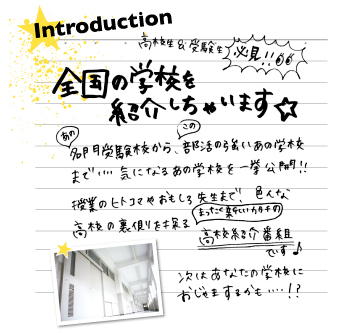 Introduction
高校生&受験生
必見!!
全国の学校を
紹介しちゃいます☆
あの
この
名門受験校から、部活の強いあの学校
まで…気になるあの学校を一挙公開!!
授業のヒトコマやおもしろ先生まで、色んな
まったく新しいカタチの
高校の裏側を探る
高校紹介番組
です♪
次はあなたの学校に
おじゃまするかも…!?